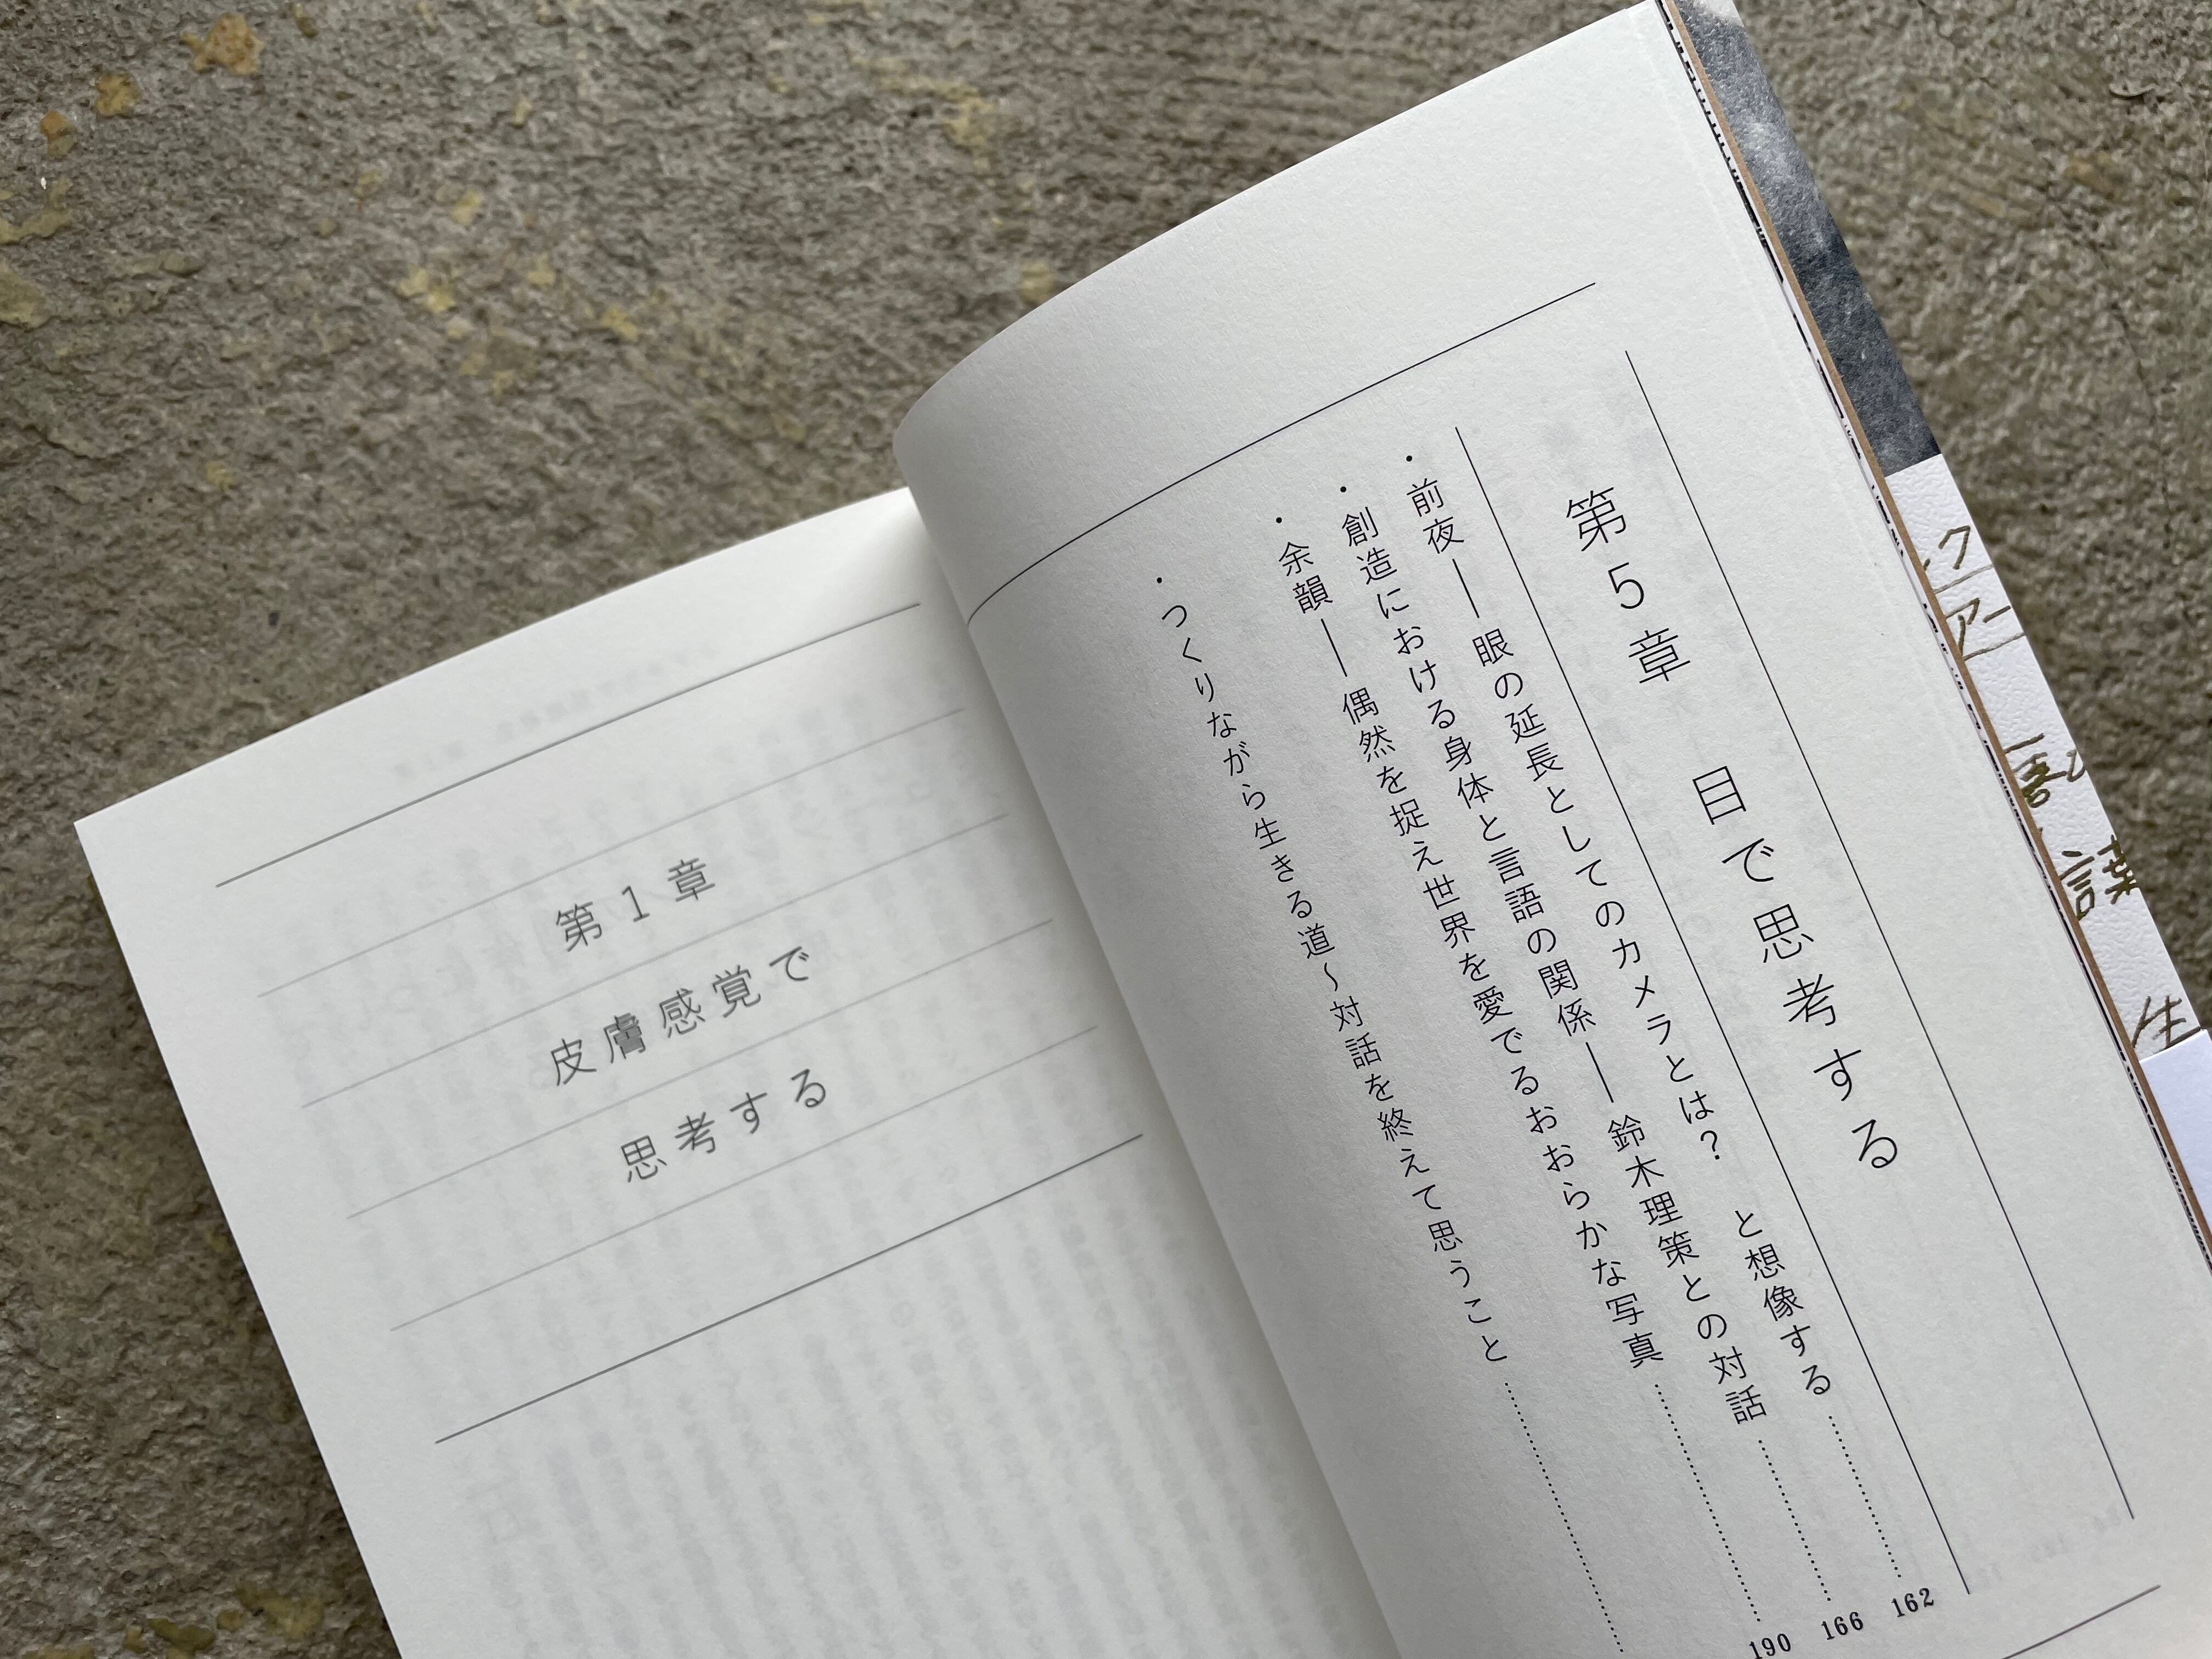 第5章　目で思考する
・前夜——眼の延長としてのカメラとは？　と想像する………162
・創造における身体と言語の関係——鈴木理策との対話………166
・余韻——偶然を捉え世界を愛でるおおらかな写真………190
・つくりながら生きる道〜対話を終えて思うこと………
第1章
皮膚感覚で
思考する
ク
アー
言葉
生